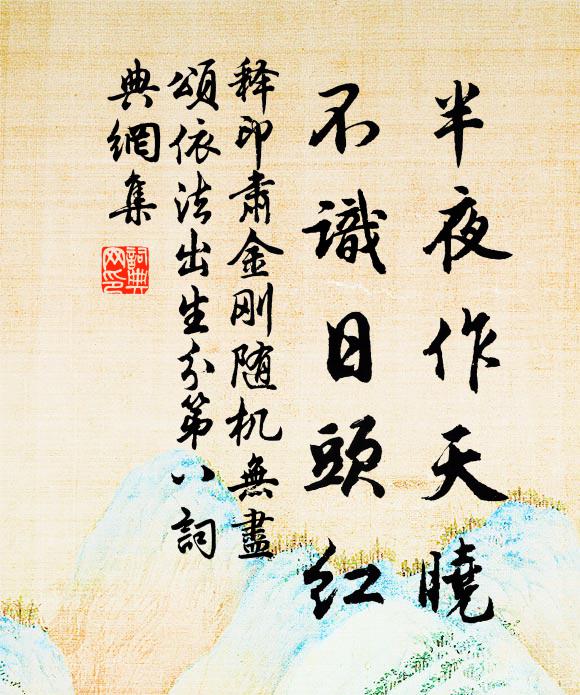 半夜作天曉
不識日頭紅
释印肅金刚随机無盡
頌依法出生分第八詞
典網集
詞典
网印